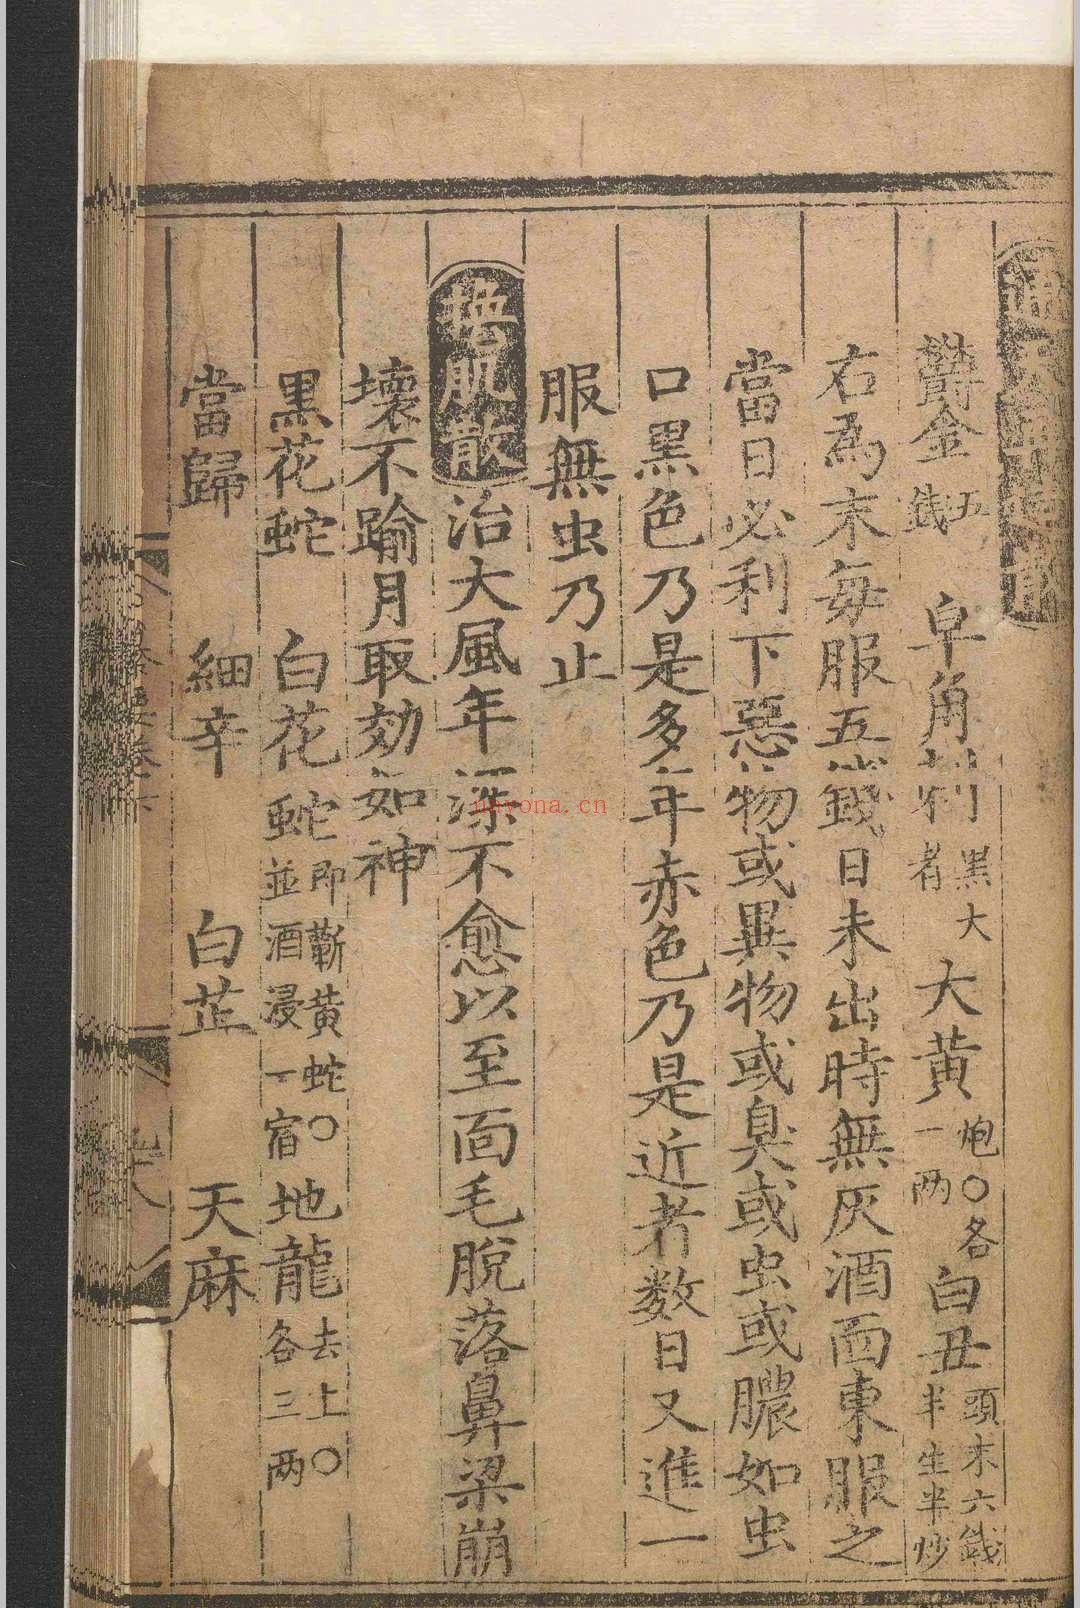 鬱金五錢 皁角刺黑大者 大黄炮〇各一两 白丑頭末六錢半生半炒
右爲末每服五錢日未出時無灰酒面東服之
當日必利下惡物或異物或臭或虫或膿如虫
口黒色乃是多年赤色乃是近者数日又進一
服無虫乃止
換肌散治大風年深不愈以至面毛脫落鼻梁崩
壞不踰月取効如神
黒花蛇 白花蛇即蘄黄蛇〇並酒浸一宿 地龍去土〇各三两
當歸 細辛 白芷 天麻
nayona.cn